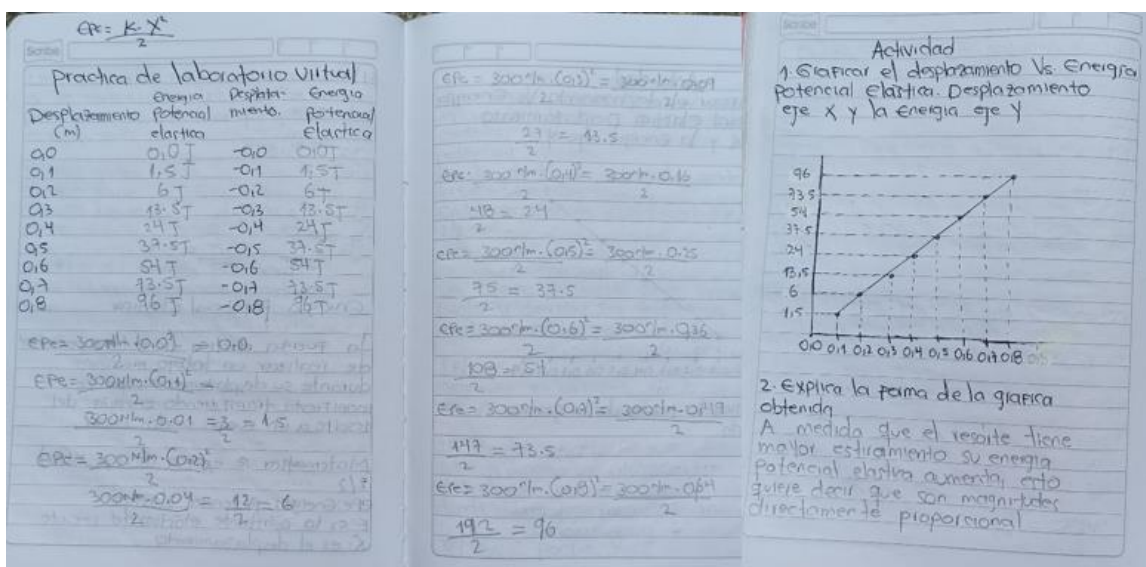 EPE = K · X²
2
Scribe
practica de laboratorio virtual
Desplazamiento (m) Energia Potencial elastica Desplaza-miento. Energia potencial Elastica
0,0 0,0 J -0,0 0,0J
0,1 1,5 J -0,1 1,5J
0,2 6J -0,2 6J
0,3 13.5J -0,3 13.5J
0,4 24J -0,4 24J
0,5 37.5J -0,5 37.5J
0,6 54J -0,6 54J
0,7 73.5J -0,7 73.5J
0,8 96J -0,8 96J
EPe = 300N/m (0,0)² = 0,0
EPe = 300N/m · (0,1)² =
2
300N/m · 0.01 = 3 = 1.5
2 2
EPe = 300N/m · (0,2)²
2
300N/m · 0.04 = 12 = 6
2 2
EPe = 300N/m · (0,3)² = 300N/m · 0,09
2 2
27 = 13.5
2
EPe = 300N/m · (0,4)² = 300N/m · 0.16
2 2
48 = 24
2
EPe = 300N/m · (0,5)² = 300N/m · 0.25
2 2
75 = 37.5
2
EPe = 300N/m · (0,6)² = 300N/m · 0,36
2 2
108 = 54
2
EPe = 300N/m · (0,7)² = 300N/m · 0,49
2
147 = 73.5
2
EPe = 300N/m · (0,8)² = 300N/m · 0,64
2
192 = 96
2
Scribe
Actividad
1. Graficar el desplazamiento Vs. Energía
potencial elastica. Desplazamiento
eje X y la Energia eje Y
96
73.5
54
37.5
24
13,5
6
1,5
0,0 0,1 0,2 0,3 0,4 0,5 0,6 0,7 0,8
2. Explica la forma de la grafica
obtenida
A medida que el resorte tiene
mayor estiramiento su energia
potencial elastica aumenta, esto
quiere decir que son magnitudes
directamente proporsional